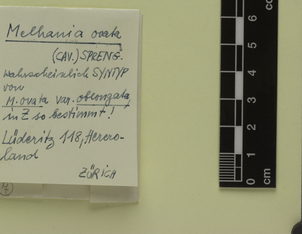 Melhania ovata
(CAV.) SPRENG.
wahrscheinlich SYNTYP
von
M. ovata var. oblongata
in Z so bestimmt!
Lüderitz 118, Herero-
land
ZÜRICH
0 1 2 3 4 5 6
cm